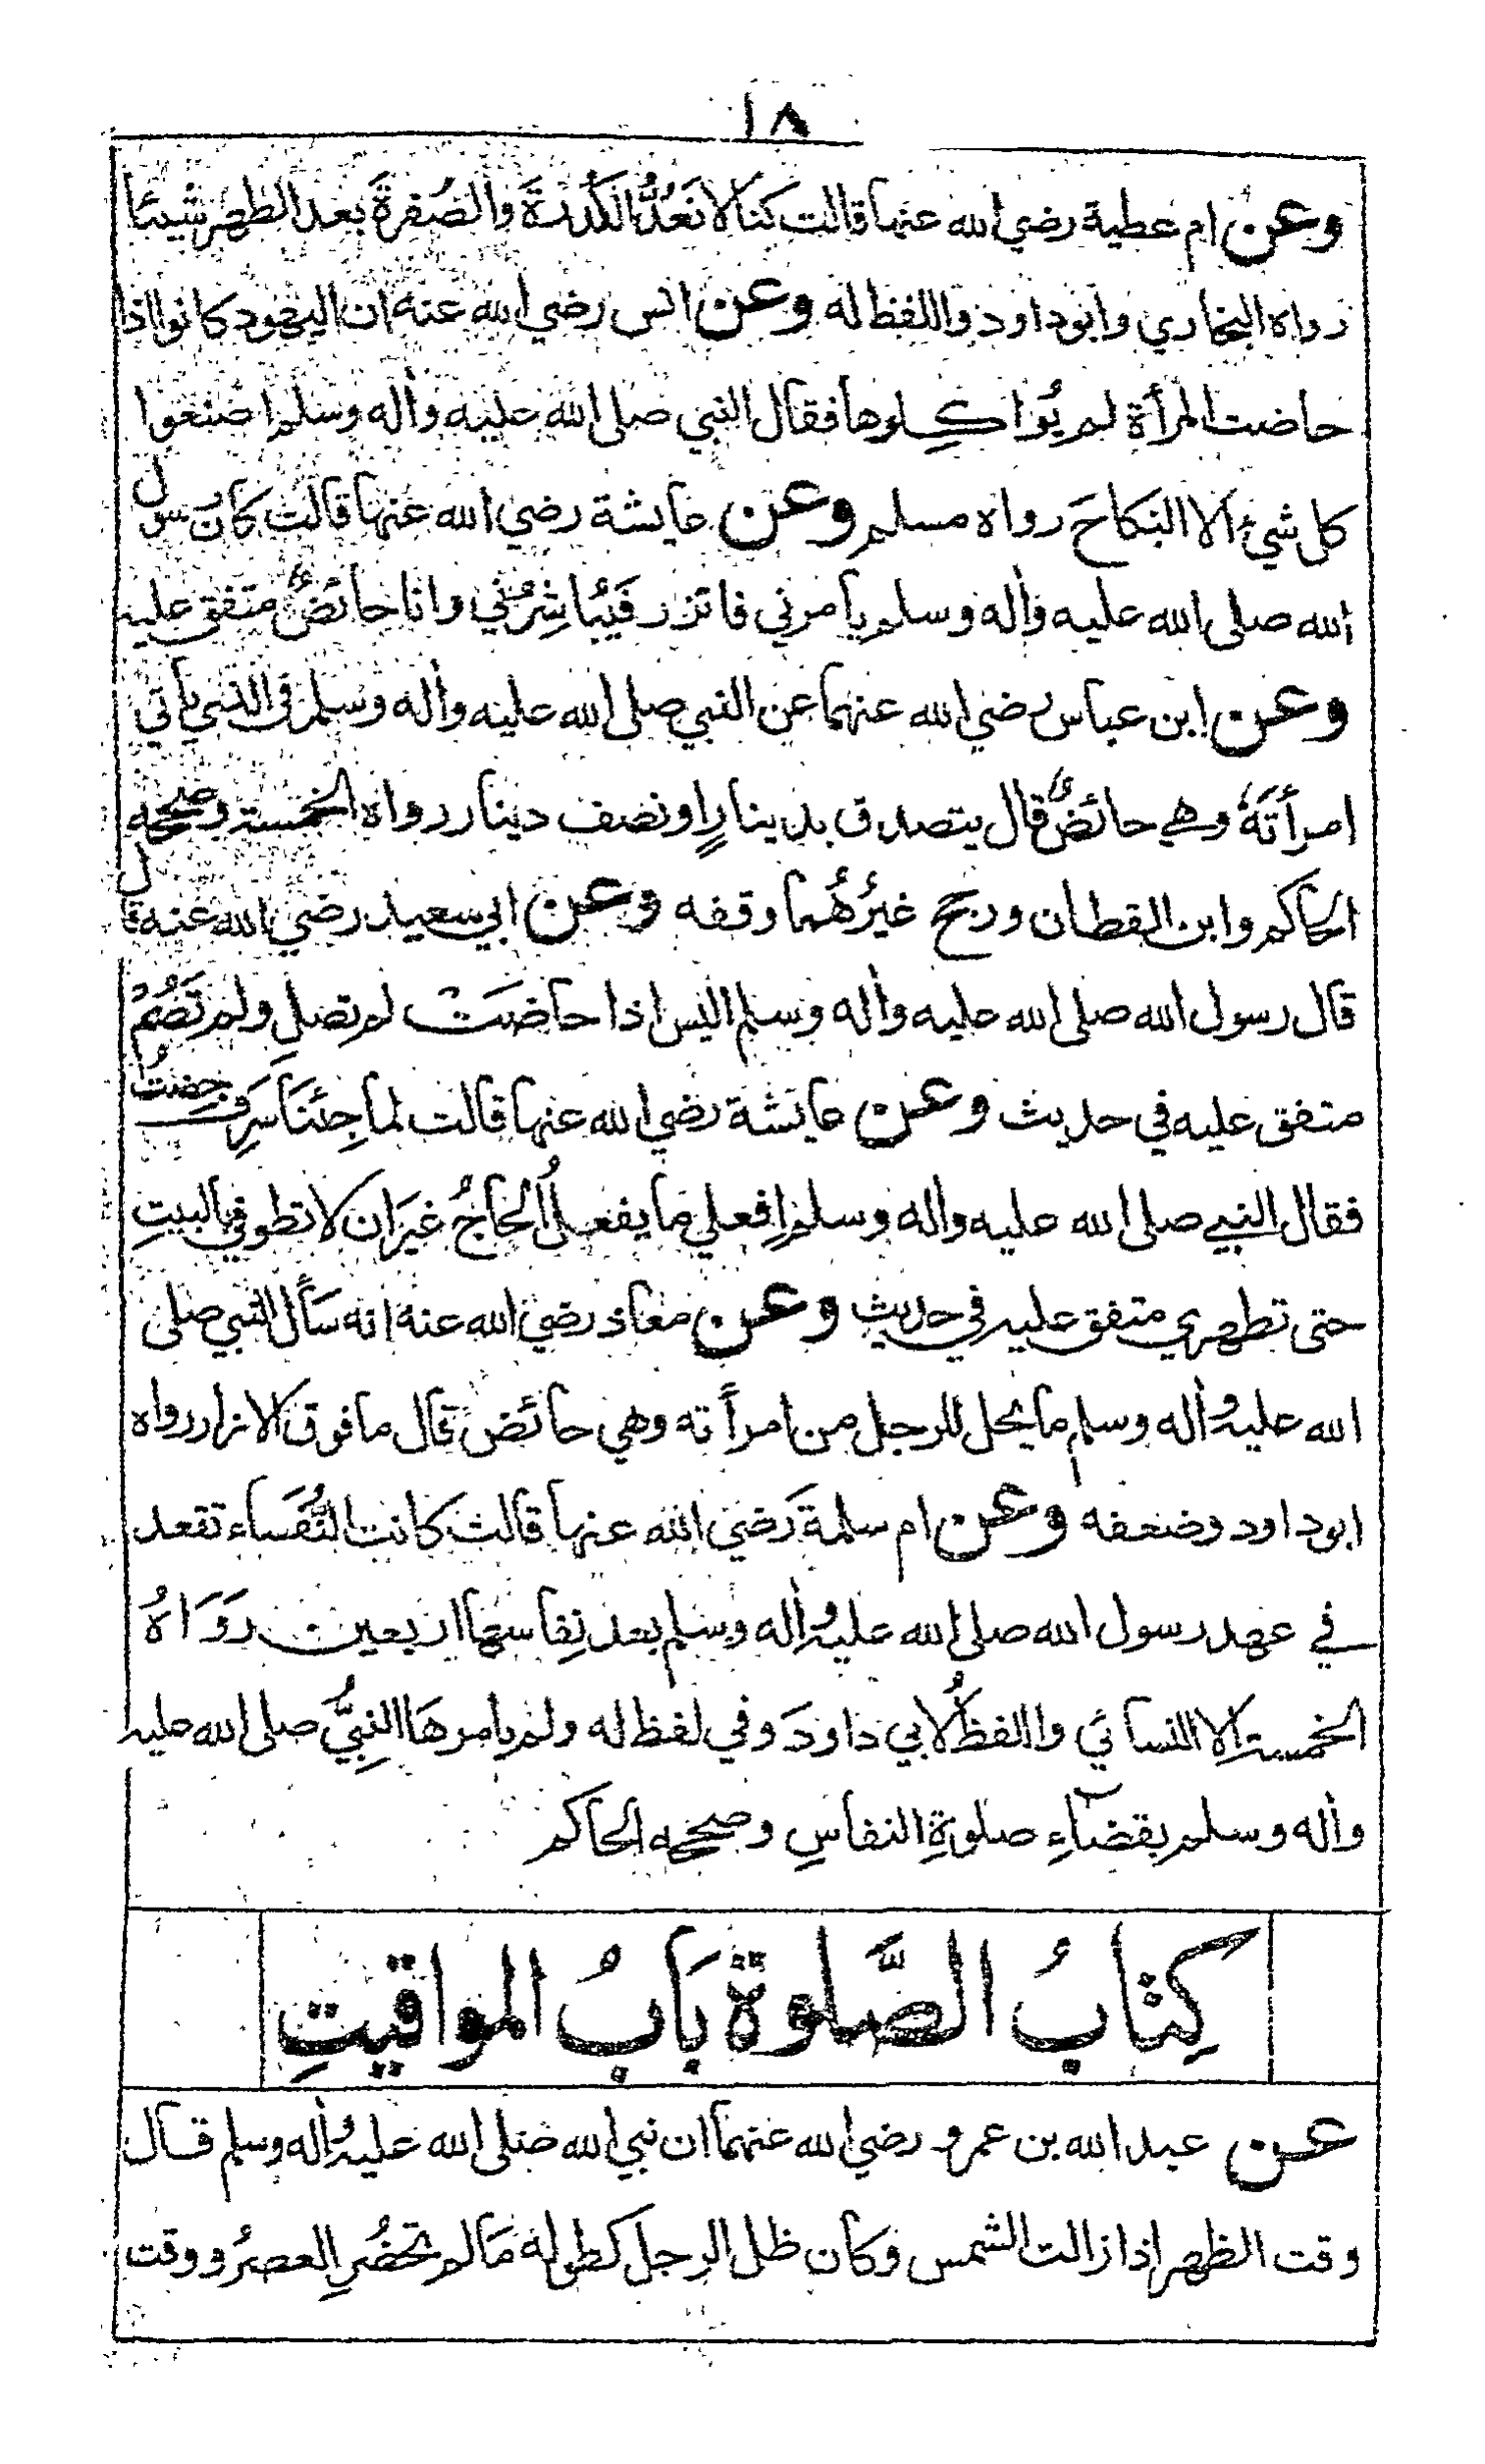 ١٨
وعن ام عطية رضي الله عنها قالت كنا لا نَعُدُّ الكُدْرَةَ والصُفرةَ بعد الطهر شيئا
رواه البخاري وابو داود واللفظ له وعن انس رضي الله عنه ان اليهود كانوا اذا
حاضت المرأة لم يُواكِلوها فقال النبي صلى الله عليه واٰله وسلم اصنعوا
كل شيء الا النكاحَ رواه مسلم وعن عايشة رضي الله عنها قالت كان رسول
الله صلى الله عليه واٰله وسلم يأمرني فاتزر فيُباشِرُني وانا حائضٌ متفق عليه
وعن ابن عباس رضي الله عنهما عن النبي صلى الله عليه واٰله وسلم في الذي يأتي
امرأتَهٗ وهي حائضٌ قال يتصدق بدينارٍ او نصف دينار رواه الخمسة وصححه
الحاكم وابن القطان ورجح غيرُهُما وقفه وعن ابي سعيد رضي الله عنه قال
قال رسول الله صلى الله عليه واٰله وسلم اليس اذا حاضَت لم تصلِ ولم تَصُمْ
متفق عليه في حديث وعن عايشة رضي الله عنها قالت لما جِئنَا سَرِفَ حِضتُ
فقال النبي صلى الله عليه واٰله وسلم اِفعلي ما يفعلُ الحاجُ غيرَ ان لا تطوفي بالبيتِ
حتى تطهري متفق عليه في حديث وعن معاذ رضي الله عنه انه سَأَل النبي صلى
الله عليه واٰله وسلم ما يحل للرجل من امرأته وهي حائض قال ما فوق الازار رواه
ابو داود وضعفه وعن ام سلمة رَضي الله عنها قالت كانت النُّفَساء تقعد
في عهد رسول الله صلى الله عليه واٰله وسلم بعد نِفاسها اربعين رَوَاهُ
الخمسة الا النسائي واللفظُ لابي داودَ وفي لفظ له ولم يأمرهَا النبِيُّ صلى الله عليه
واٰله وسلم بقضآءِ صلوةِ النفاسِ وصححه الحاكم
كِتابُ الصَّلوة بَابُ المواقيتِ
عن عبد الله بن عمرو رضي الله عنهما ان نبي الله صلى الله عليه واٰله وسلم قال
وقت الظهر اذا زالت الشمس وكان ظل الرجل كطوله مَا لم تحضُرِ العصرُ ووقت